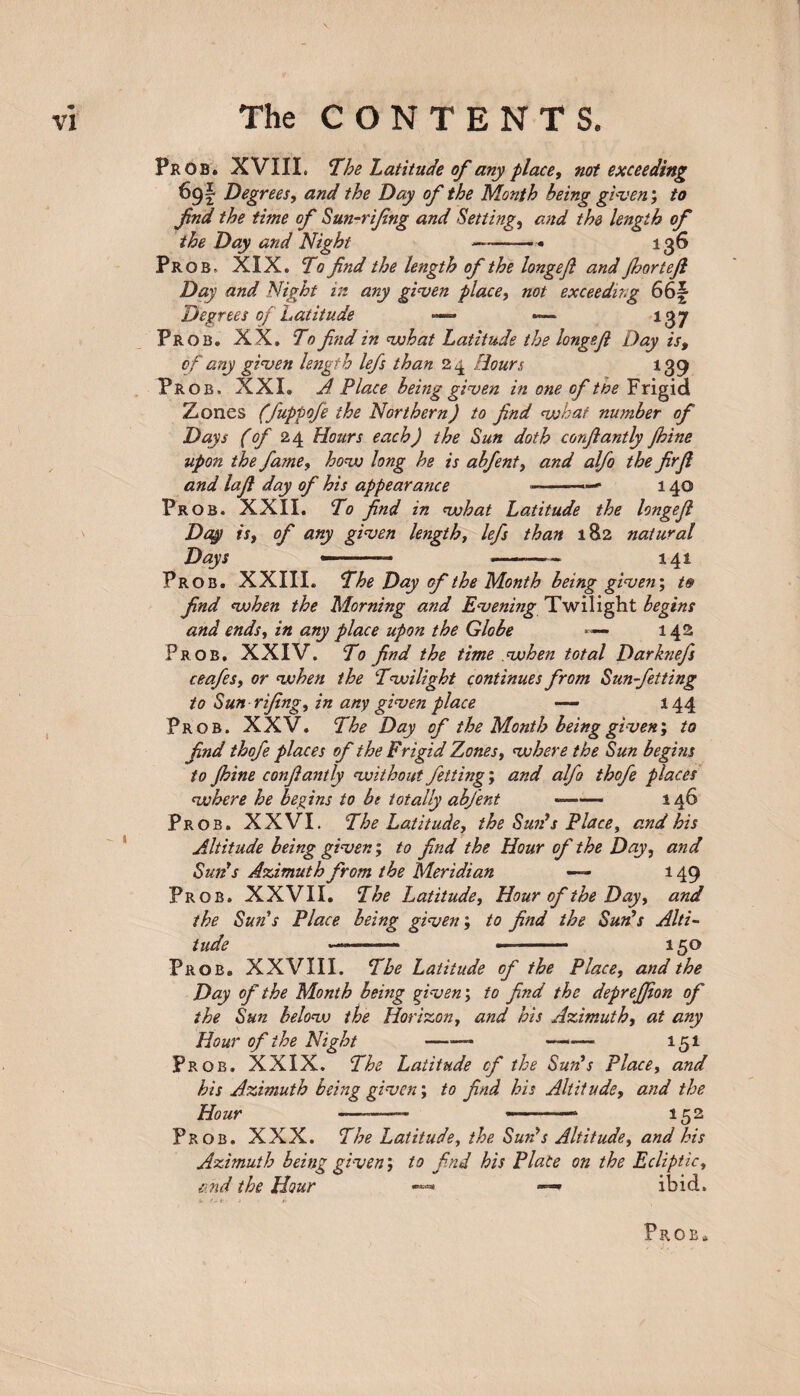 vi The CONTENTS.
PROB. XVIII. The Latitude of any place, not exceeding
69½ Degrees, and the Day of the Month being given; to
find the time of Sun-rising and Setting, and the length of
the Day and Night —— 136
PROB. XIX. To find the length of the longeſt and ſhorteſt
Day and Night in any given place, not exceeding 66½
Degrees of Latitude — — 137
PROB. XX. To find in what Latitude the longeſt Day is,
of any given length leſs than 24 Hours 139
PROB. XXI. A Place being given in one of the Frigid
Zones (ſuppoſe the Northern) to find what number of
Days (of 24 Hours each) the Sun doth conſtantly ſhine
upon the ſame, how long he is abſent, and alſo the firſt
and laſt day of his appearance —— 140
PROB. XXII. To find in what Latitude the longeſt
Day is, of any given length, leſs than 182 natural
Days —— —— 141
PROB. XXIII. The Day of the Month being given; to
find when the Morning and Evening Twilight begins
and ends, in any place upon the Globe — 142
PROB. XXIV. To find the time when total Darkneſs
ceaſes, or when the Twilight continues from Sun-ſetting
to Sun-riſing, in any given place — 144
PROB. XXV. The Day of the Month being given; to
find thoſe places of the Frigid Zones, where the Sun begins
to ſhine conſtantly without ſetting; and alſo thoſe places
where he begins to be totally abſent —— 146
PROB. XXVI. The Latitude, the Sun's Place, and his
Altitude being given; to find the Hour of the Day, and
Sun's Azimuth from the Meridian — 149
PROB. XXVII. The Latitude, Hour of the Day, and
the Sun's Place being given; to find the Sun's Alti-
tude —— —— 150
PROB. XXVIII. The Latitude of the Place, and the
Day of the Month being given; to find the depreſſion of
the Sun below the Horizon, and his Azimuth, at any
Hour of the Night —— —— 151
PROB. XXIX. The Latitude of the Sun's Place, and
his Azimuth being given; to find his Altitude, and the
Hour —— —— 152
PROB. XXX. The Latitude, the Sun's Altitude, and his
Azimuth being given; to find his Place on the Ecliptic,
and the Hour — — ibid.
PROB.